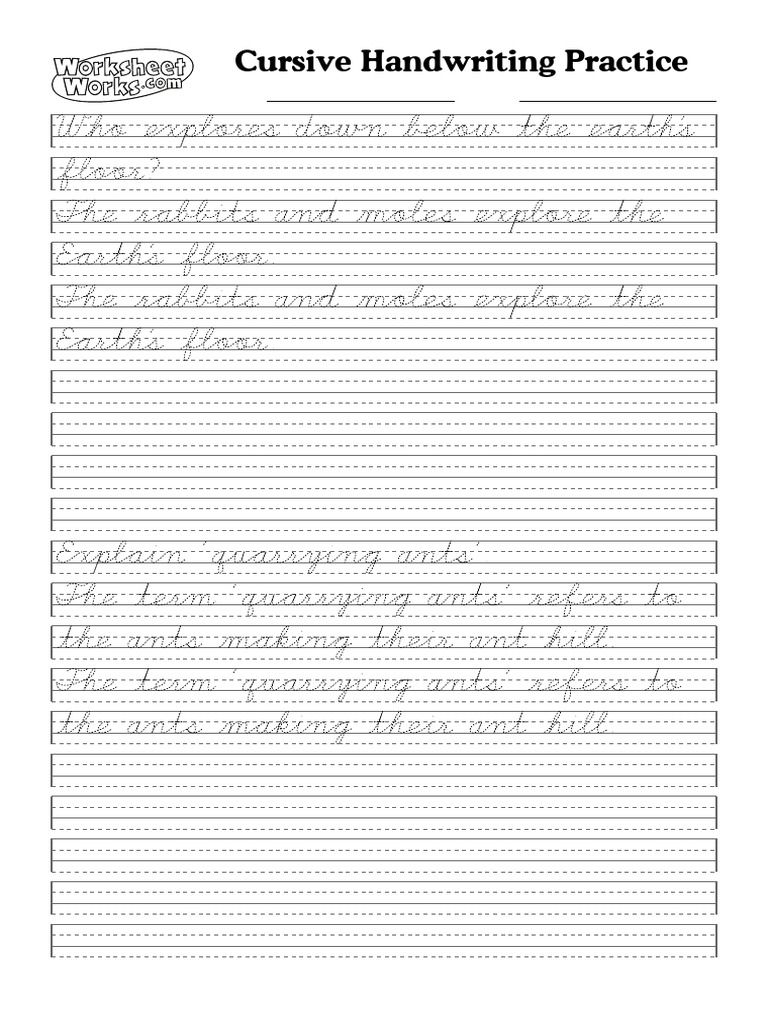 Worksheet
Works.com
Cursive Handwriting Practice
Who explores down below the earth's
floor?
The rabbits and moles explore the
Earth's floor.
The rabbits and moles explore the
Earth's floor.
Explain 'quarrying ants'
The term 'quarrying ants' refers to
the ants making their ant hill.
The term 'quarrying ants' refers to
the ants making their ant hill.